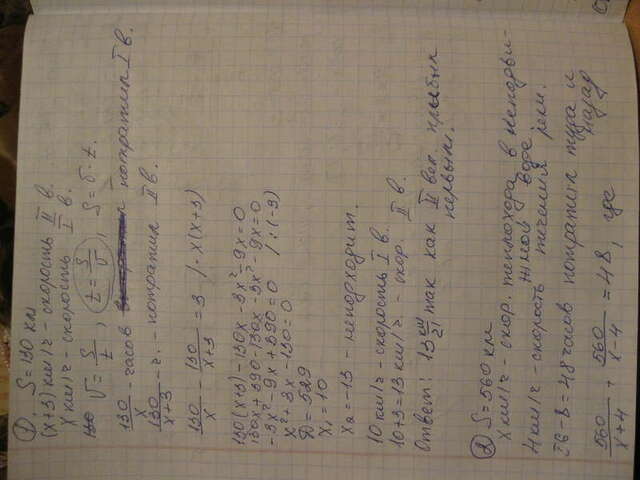 ① S = 130 км
(x+3) км/ч - скорость II в.
x км/ч - скорость I в.
V = S/t, t = S/V, S = V·t.
130/x - часов потратил I в.
130/(x+3) - ч. - потратил II в.
130/x - 130/(x+3) = 3 /· x(x+3)
130(x+3) - 130x - 3x² - 9x = 0
130x + 390 - 130x - 3x² - 9x = 0
-3x² - 9x + 390 = 0 /:(-3)
x² + 3x - 130 = 0
D = 529
x₁ = 10
x₂ = -13 - неподходит.
10 км/ч - скорость I в.
10+3=13 км/ч - скор. II в.
Ответ: 13 км/ч так как II вел. прибыл
первым.
② S = 560 км
x км/ч - скор. теплохода в неподви-
жной воде.
4 км/ч - скорость течения реки.
56-8=48 часов потратил туда и
назад
560/(x+4) + 560/(x-4) = 48, где